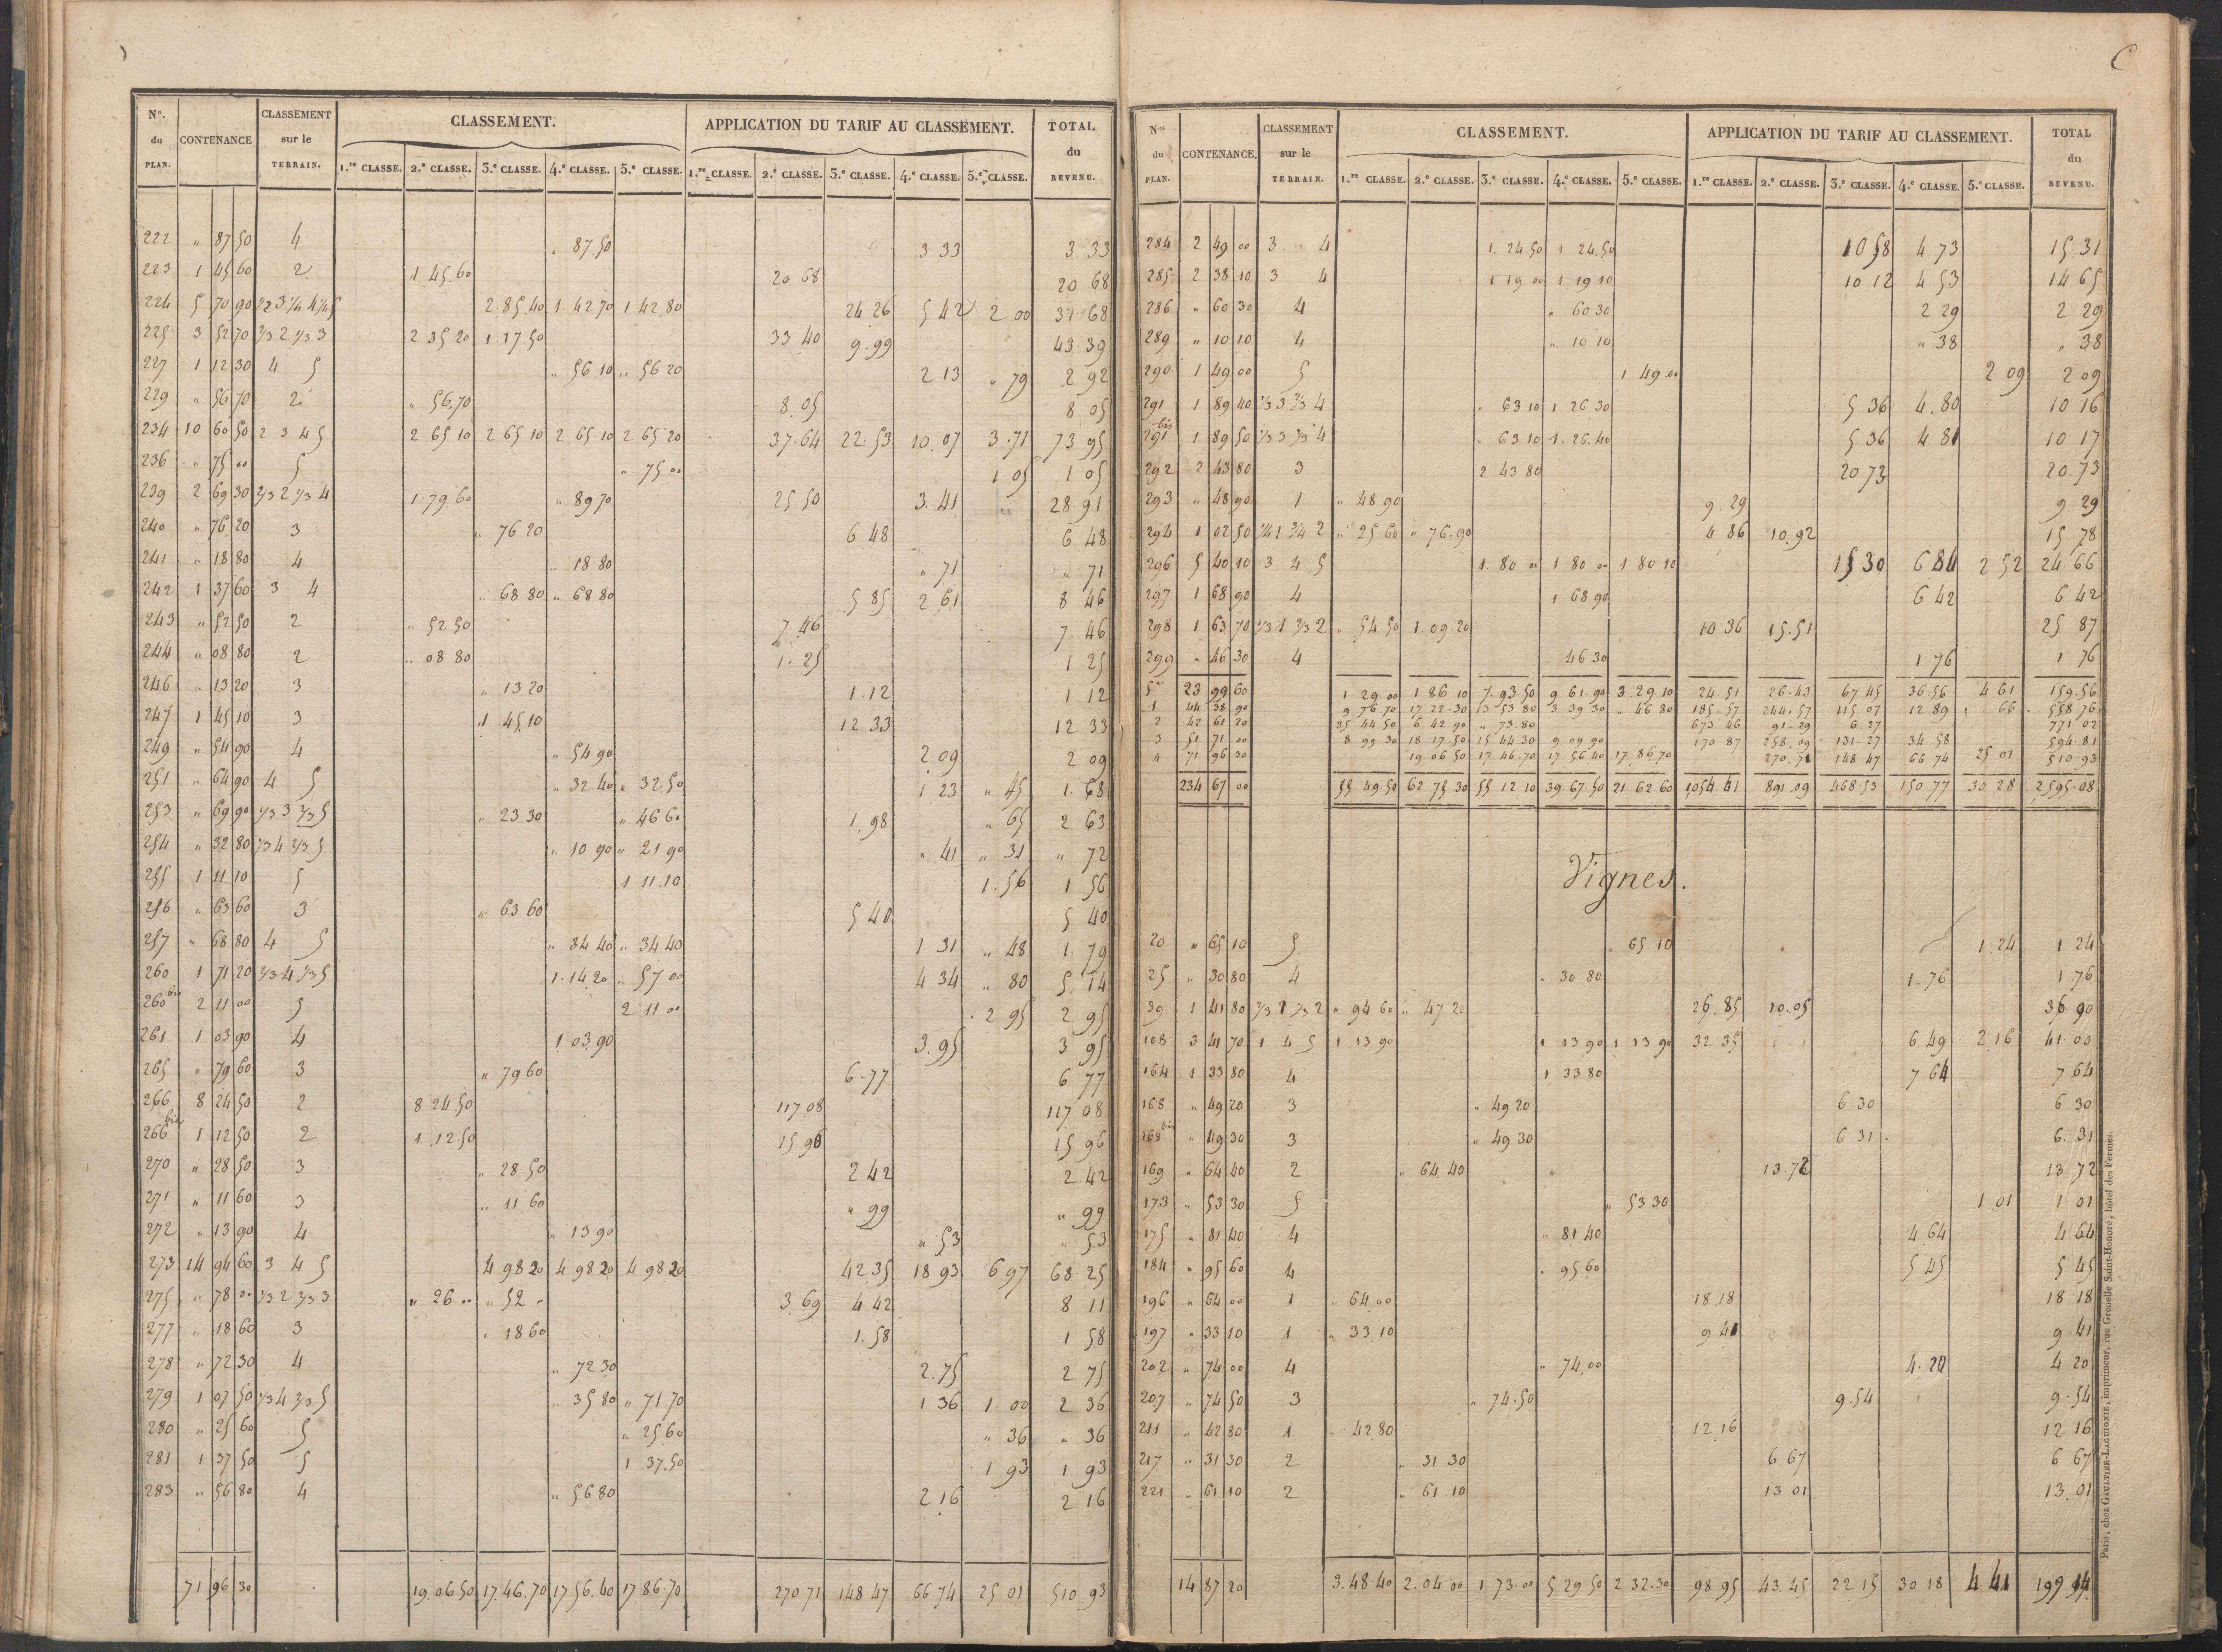 N.º du PLAN. CONTENANCE CLASSEMENT sur le TERRAIN. CLASSEMENT. APPLICATION DU TARIF AU CLASSEMENT. TOTAL du REVENU.
1.re CLASSE. 2.e CLASSE. 3.e CLASSE. 4.e CLASSE. 5.e CLASSE. 1.re CLASSE. 2.e CLASSE. 3.e CLASSE. 4.e CLASSE. 5.e CLASSE.
222 " 87 50 4 " 87 50 3 33 3 33
223 1 45 60 2 1 45 60 20 68 20 68
224 5 70 90 1/2 3 1/4 4 1/4 5 2 85 40 1 42 70 1 42 80 24 26 5 42 2 00 31 68
225 3 52 70 2/3 2 1/3 3 2 35 20 1 17 50 33 40 9 99 43 39
227 1 12 30 4 5 " 56 10 " 56 20 2 13 " 79 2 92
229 " 56 70 2 " 56 70 8 05 8 05
234 10 60 50 2 3 4 5 2 65 10 2 65 10 2 65 10 2 65 20 37 64 22 53 10 07 3 71 73 95
236 " 75 00 5 " 75 00 1 05 1 05
239 2 69 30 2/3 2 1/3 4 1 79 60 " 89 70 25 50 3 41 28 91
240 " 76 20 3 " 76 20 6 48 6 48
241 " 18 80 4 " 18 80 " 71 " 71
242 1 37 60 3 4 " 68 80 " 68 80 5 85 2 61 8 46
243 " 52 50 2 " 52 50 7 46 7 46
244 " 08 80 2 " 08 80 1 25 1 25
246 " 13 20 3 " 13 20 1 12 1 12
247 1 45 10 3 1 45 10 12 33 12 33
249 " 54 90 4 " 54 90 2 09 2 09
251 " 64 90 4 5 " 32 40 " 32 50 1 23 " 45 1 68
253 " 69 90 1/3 3 2/3 5 " 23 30 " 46 60 1 98 " 65 2 63
254 " 32 80 1/3 4 2/3 5 " 10 90 " 21 90 " 41 " 31 " 72
255 1 11 10 5 1 11 10 1 56 1 56
256 " 63 60 3 " 63 60 5 40 5 40
257 " 68 80 4 5 " 34 40 " 34 40 1 31 " 48 1 79
260 1 71 20 2/3 4 1/3 5 1 14 20 " 57 00 4 34 " 80 5 14
260 bis 2 11 00 5 2 11 00 2 95 2 95
261 1 03 90 4 1 03 90 3 95 3 95
265 " 79 60 3 " 79 60 6 77 6 77
266 8 24 50 2 8 24 50 117 08 117 08
266 bis 1 12 50 2 1 12 50 15 96 15 96
270 " 28 50 3 " 28 50 2 42 2 42
271 " 11 60 3 " 11 60 " 99 " 99
272 " 13 90 4 " 13 90 " 53 " 53
273 14 94 60 3 4 5 4 98 20 4 98 20 4 98 20 42 35 18 93 6 97 68 25
275 " 78 00 1/3 2 2/3 3 " 26 00 " 52 " 3 69 4 42 8 11
277 " 18 60 3 " 18 60 1 58 1 58
278 " 72 30 4 " 72 30 2 75 2 75
279 1 07 50 1/3 4 2/3 5 " 35 80 " 71 70 1 36 1 00 2 36
280 " 25 60 5 " 25 60 " 36 " 36
281 1 37 50 5 1 37 50 1 93 1 93
283 " 56 80 4 " 56 80 2 16 2 16
71 96 30 19 06 50 17 46 70 17 56 40 17 86 70 270 71 148 47 66 74 25 01 510 93
N.os du PLAN. CONTENANCE. CLASSEMENT sur le TERRAIN. CLASSEMENT. APPLICATION DU TARIF AU CLASSEMENT. TOTAL du REVENU.
1.re CLASSE. 2.e CLASSE. 3.e CLASSE. 4.e CLASSE. 5.e CLASSE. 1.re CLASSE. 2.e CLASSE. 3.e CLASSE. 4.e CLASSE. 5.e CLASSE.
284 2 49 00 3 4 1 24 50 1 24 50 10 58 4 73 15 31
285 2 38 10 3 4 1 19 00 1 19 10 10 12 4 53 14 65
286 " 60 30 4 " 60 30 2 29 2 29
289 " 10 10 4 " 10 10 " 38 " 38
290 1 49 00 5 1 49 00 2 09 2 09
291 1 89 40 1/3 3 2/3 4 " 63 10 1 26 30 5 36 4 80 10 16
291 bis 1 89 50 1/3 3 2/3 4 " 63 10 1 26 40 5 36 4 81 10 17
292 2 43 80 3 2 43 80 20 73 20 73
293 " 48 90 1 " 48 90 9 29 9 29
294 1 02 50 1/4 1 3/4 2 " 25 60 " 76 90 4 86 10 92 15 78
296 5 40 10 3 4 5 1 80 00 1 80 00 1 80 10 15 30 6 84 2 52 24 66
297 1 68 90 4 1 68 90 6 42 6 42
298 1 63 70 1/3 1 2/3 2 " 54 50 1 09 20 10 36 15 51 25 87
299 " 46 30 4 " 46 30 1 76 1 76
5 23 99 60 1 29 00 1 86 10 7 93 50 9 61 90 3 29 10 24 51 26 43 67 45 36 56 4 61 159 56
1 44 38 90 9 76 70 17 22 30 13 53 80 3 39 30 " 46 80 185 57 244 57 115 07 12 89 " 66 558 76
2 42 61 20 35 44 50 6 42 90 " 73 80 673 46 91 29 6 27 771 02
3 51 71 00 8 99 30 18 17 50 15 44 30 9 09 90 170 87 258 09 131 27 34 58 594 81
4 71 96 30 19 06 50 17 46 70 17 56 40 17 86 70 270 71 148 47 66 74 25 01 510 93
234 67 00 55 49 50 62 75 30 55 12 10 39 67 50 21 62 60 1054 41 891 09 468 53 150 77 30 28 2595 08
Vignes.
20 " 65 10 5 " 65 10 1 24 1 24
25 " 30 80 4 " 30 80 1 76 1 76
39 1 41 80 2/3 1 1/3 2 " 94 60 " 47 20 26 85 10 05 36 90
108 3 41 70 1 4 5 1 13 90 1 13 90 1 13 90 32 35 6 49 2 16 41 00
164 1 33 80 4 1 33 80 7 64 7 64
168 " 49 20 3 " 49 20 6 30 6 30
168 bis " 49 30 3 " 49 30 6 31 6 31
169 " 64 40 2 " 64 40 13 72 13 72
173 " 53 30 5 " 53 30 1 01 1 01
175 " 81 40 4 " 81 40 4 64 4 64
184 " 95 60 4 " 95 60 5 45 5 45
196 " 64 00 1 " 64 00 18 18 18 18
197 " 33 10 1 " 33 10 9 41 9 41
202 " 74 00 4 " 74 00 4 20 4 20
207 " 74 50 3 " 74 50 9 54 9 54
211 " 42 80 1 " 42 80 12 16 12 16
217 " 31 30 2 " 31 30 6 67 6 67
221 " 61 10 2 " 61 10 13 01 13 01
14 87 20 3 48 40 2 04 00 1 73 00 5 29 50 2 32 30 98 95 43 45 22 15 30 18 4 41 199 14
Paris, chez GAULTIER-LAGUIONIE, imprimeur, rue Grenelle Saint-Honoré, hôtel des Fermes.